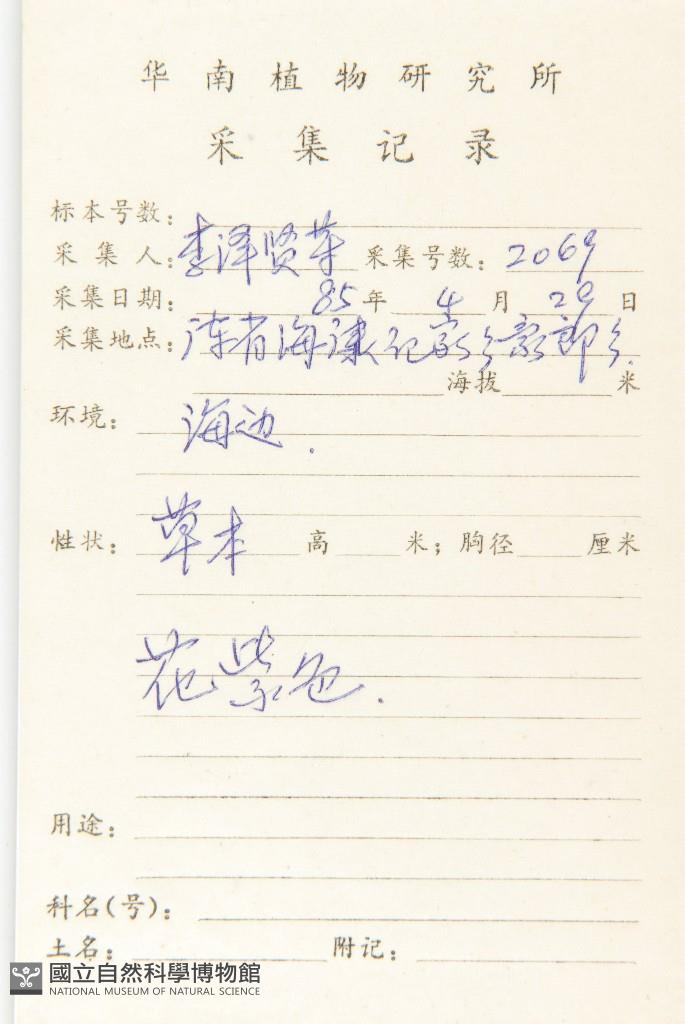 华南植物研究所
采集记录
标本号数:
采集人: 李泽贤等 采集号数: 2069
采集日期: 85年4月29日
采集地点: 广东省海康
海拔 米
环境: 海边.
性状: 草本 高 米; 胸径 厘米
花紫色.
用途:
科名(号):
土名: 附记:
國立自然科學博物館
NATIONAL MUSEUM OF NATURAL SCIENCE